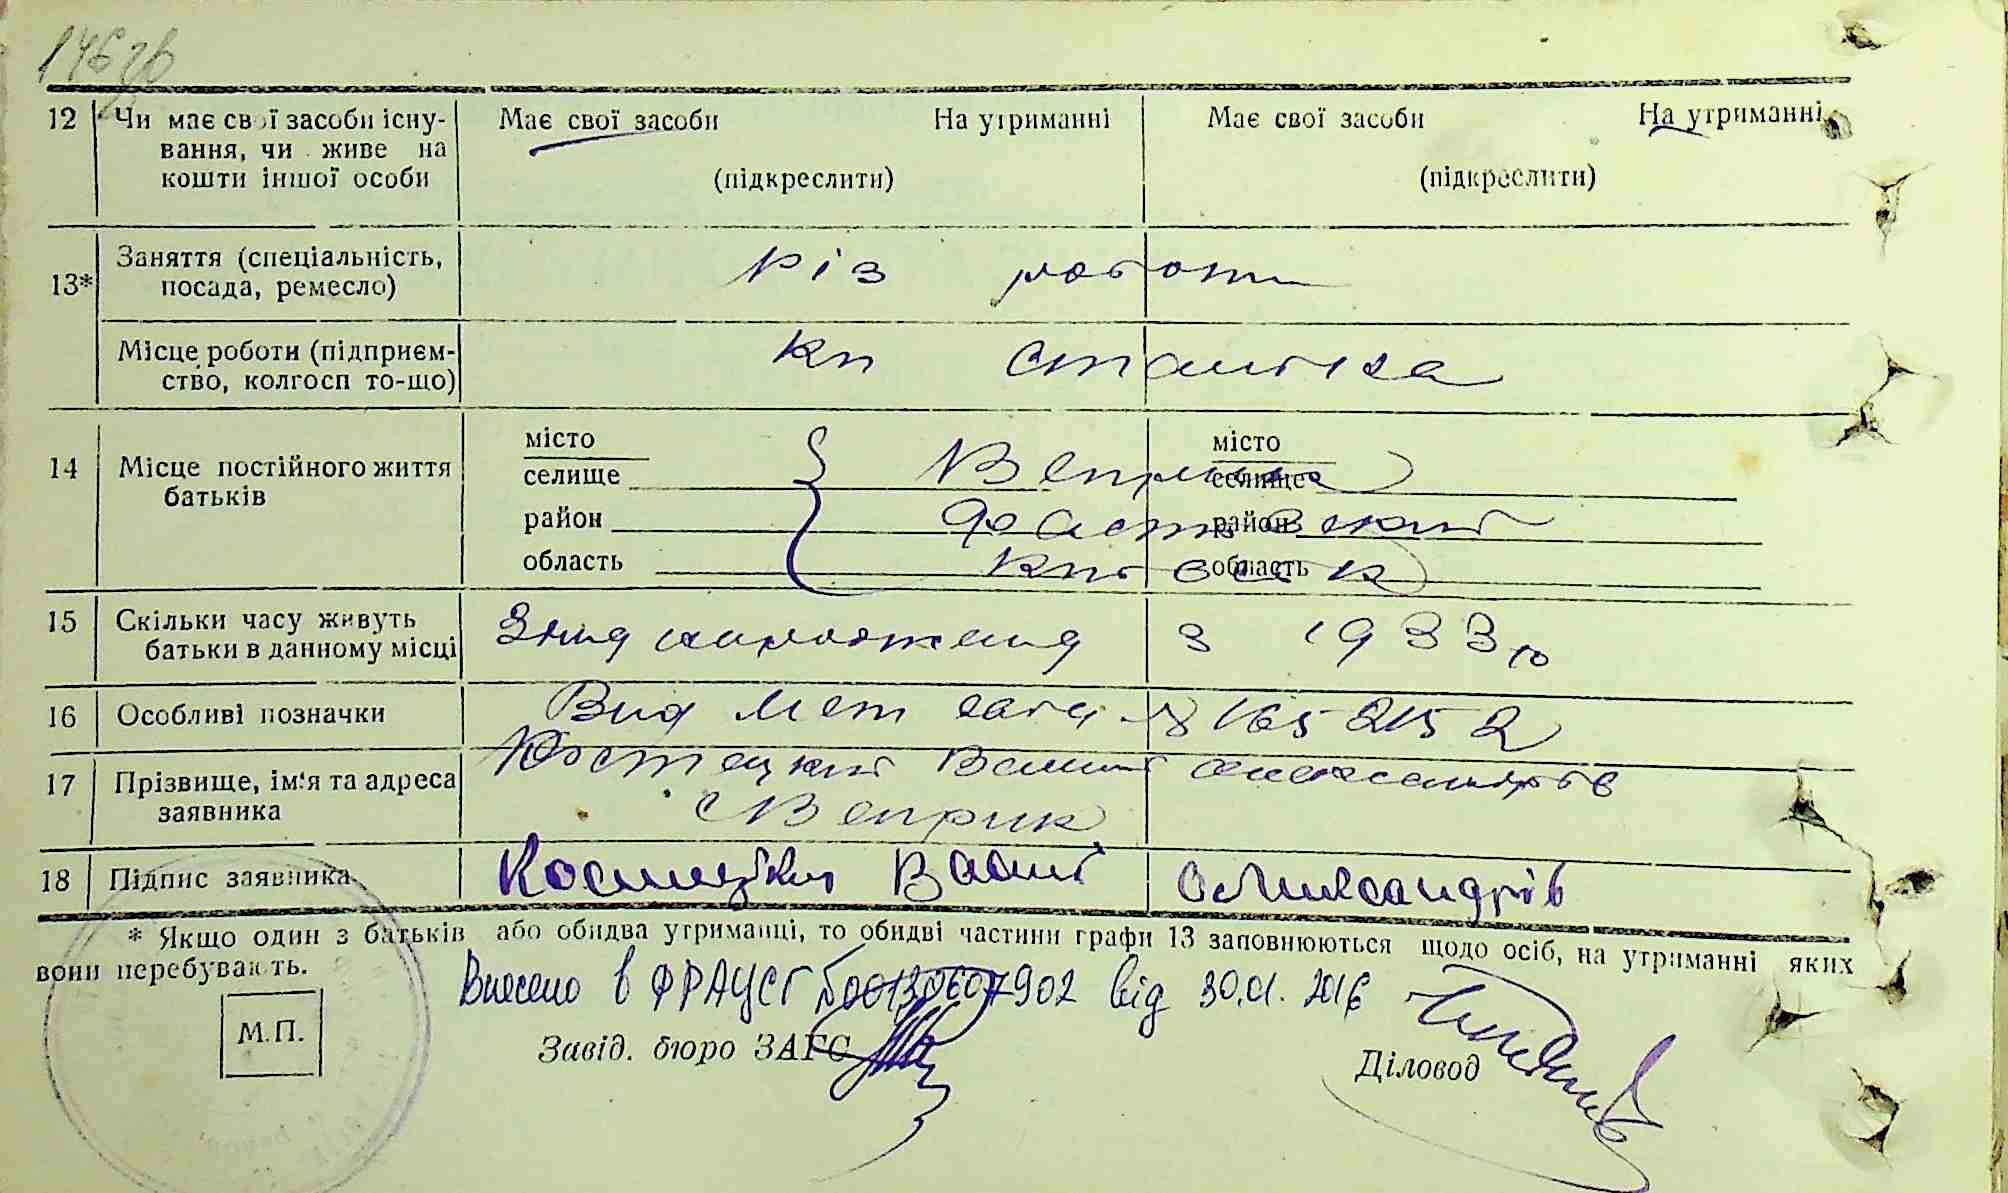 146 зв
12 Чи має свої засоби існу- Має свої засоби На утриманні Має свої засоби На утриманні
вання, чи живе на
кошти іншої особи (підкреслити) (підкреслити)
Заняття (спеціальність, різ роботи
13* посада, ремесло)
Місце роботи (підприєм-
ство, колгосп то-що)
місто місто
14 Місце постійного життя селище селище
батьків район Фастівский район
область Київськ область
15 Скільки часу живуть З 1933 р
батьки в данному місці
16 Особливі позначки Вид мет
17 Прізвище, ім'я та адреса Костецкий Василь Олександрів
заявника с Веприк
18 Підпис заявника Костецкий Василь Олександрів
* Якщо один з батьків або обидва утриманці, то обидві частини графи 13 заповнюються щодо осіб, на утриманні яких
вони перебувають.
Внесено в ФРАЦСГ 00130607902 від 30.01.2016
М.П.
Завід. бюро ЗАГС Діловод